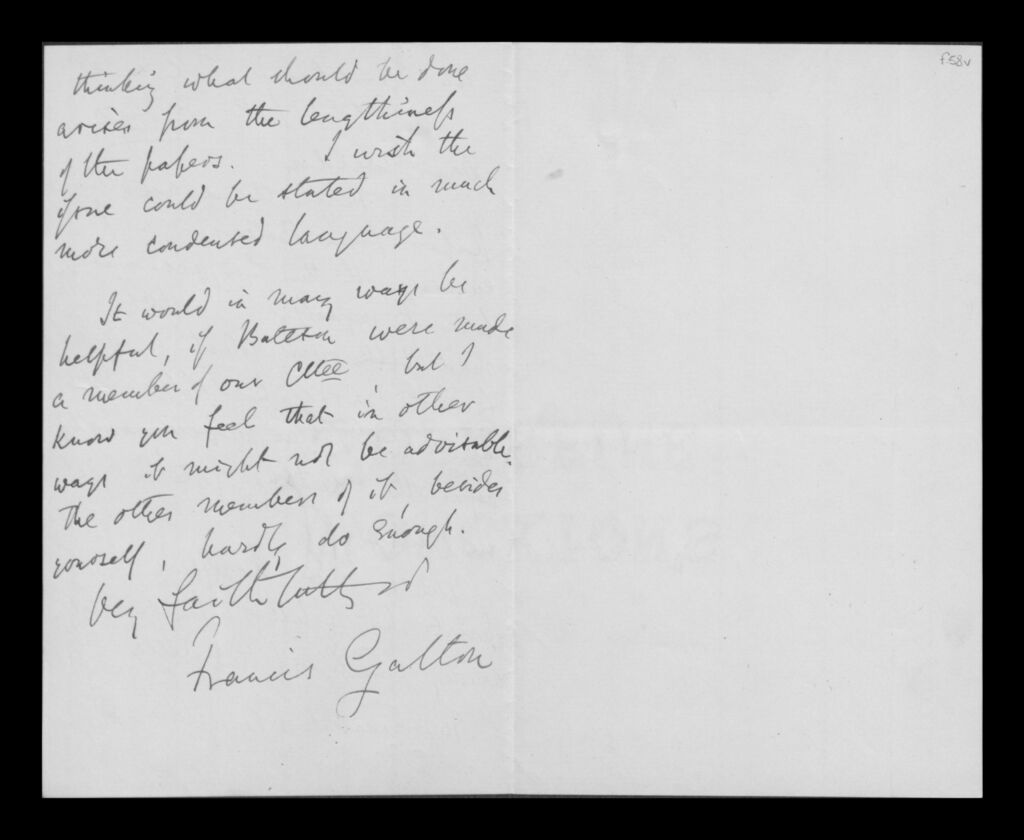 f58v
thinking what should be done
arises from the lengthiness
of the papers. I wish the
issue could be stated in much
more condensed language.
It would in many ways be
helpful, if Bateson were made
a member of our Cttee but I
know you feel that in other
ways it might not be advisable.
The other members of it besides
yourself, hardly do enough.
Very faithfully yrs
Francis Galton